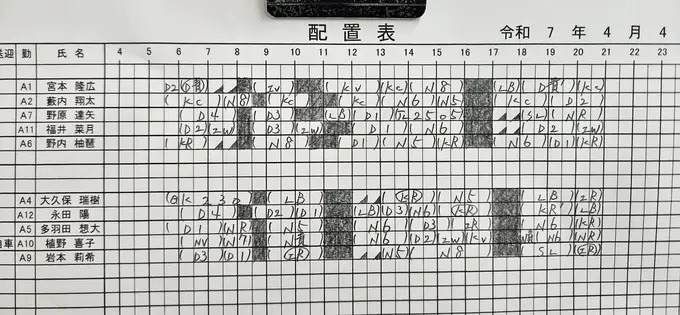 配置表 令和 7 年 4 月 4
送迎 勤 氏 名 4 5 6 7 8 9 10 11 12 13 14 15 16 17 18 19 20 21 22 23
A1 宮本 隆広 D2 KV KC N8 LB KC
A2 藪内 翔太 KC N8 KC KC N6 N5 KC D2
A7 野原 達矢 D4 D3 LB D1 SL NR
A11 福井 菜月 D2 2W D3 2W D1 N6 D2 2W
A6 野内 柚琶 KR N8 D1 N5 KR N6 D1 KR
A4 大久保 瑞樹 K 230 LB KR N5 LB 2R
A12 永田 陽 D4 D2 D1 LB D3 N6 KR N6 KR LB
A5 多羽田 想大 D1 NR N5 N6 D3 2R N6 KR
車 A10 植野 喜子 NV N N6 D2 2W KV N6 NR
A9 岩本 莉希 D3 D1 N5 N8 SL